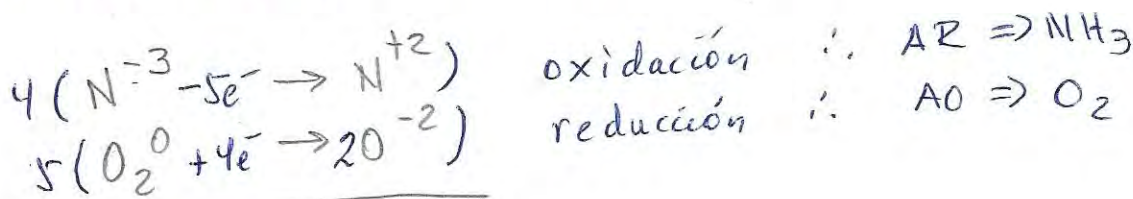 4 ( N⁻³ -5e⁻ → N⁺² ) oxidación ∴ AR ⇒ NH₃
5 ( O₂⁰ +4e⁻ → 2O⁻² ) reducción ∴ AO ⇒ O₂